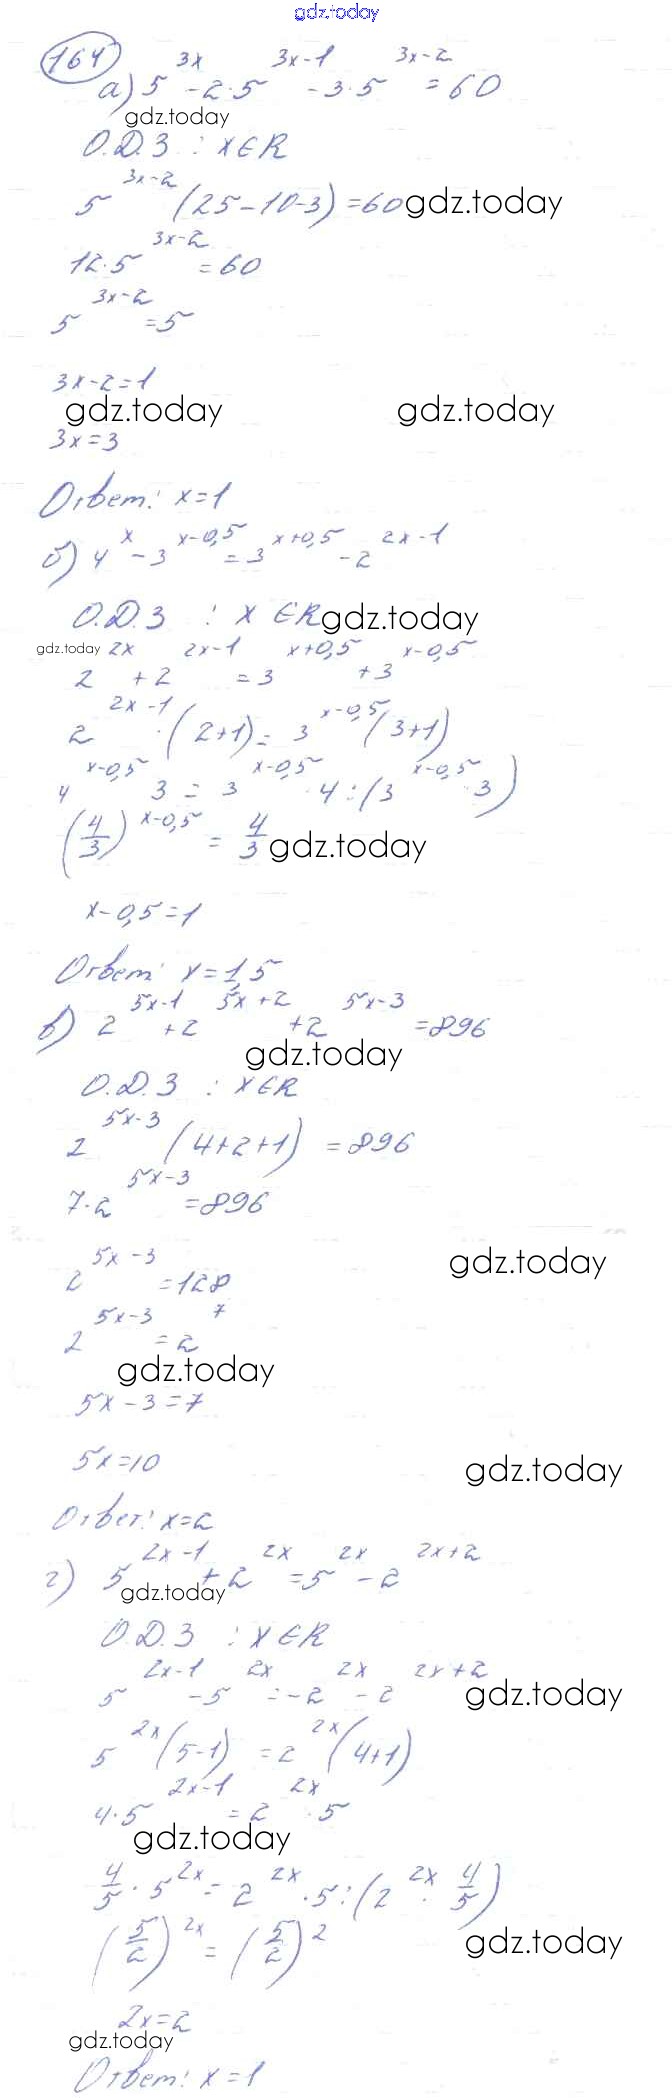 gdz.today
164
а) 5^(3x) - 2·5^(3x-1) - 3·5^(3x-2) = 60
gdz.today
О.Д.З : x∈R
5^(3x-2) (25-10-3) = 60 gdz.today
12·5^(3x-2) = 60
5^(3x-2) = 5
3x-2=1
gdz.today gdz.today
3x=3
Ответ: x=1
б) 4^x - 3^(x-0,5) = 3^(x+0,5) - 2^(2x-1)
О.Д.З : x∈R gdz.today
gdz.today
2^(2x) + 2^(2x-1) = 3^(x+0,5) + 3^(x-0,5)
2^(2x-1) · (2+1) = 3^(x-0,5) (3+1)
4^(x-0,5) 3 = 3^(x-0,5) · 4 : (3^(x-0,5) · 3)
(4/3)^(x-0,5) = 4/3 gdz.today
x-0,5=1
Ответ: x=1,5
в) 2^(5x-1) + 2^(5x+2) + 2^(5x-3) = 896
gdz.today
О.Д.З : x∈R
2^(5x-3) (4+2+1) = 896
7·2^(5x-3) = 896
gdz.today
2^(5x-3) = 128
2^(5x-3) = 2^7
gdz.today
5x-3=7
5x=10
gdz.today
Ответ: x=2
г) 5^(2x-1) + 2^(2x) = 5^(2x) - 2^(2x+2)
gdz.today
О.Д.З : x∈R
5^(2x-1) - 5^(2x) = -2^(2x) - 2^(2x+2) gdz.today
5^(2x) (5-1) = 2^(2x) (4+1)
4·5^(2x-1) = 2^(2x) · 5
gdz.today
4/5 · 5^(2x) = 2^(2x) · 5 : (2^(2x) · 4/5)
(5/2)^(2x) = (5/2)^2 gdz.today
2x=2
gdz.today
Ответ: x=1